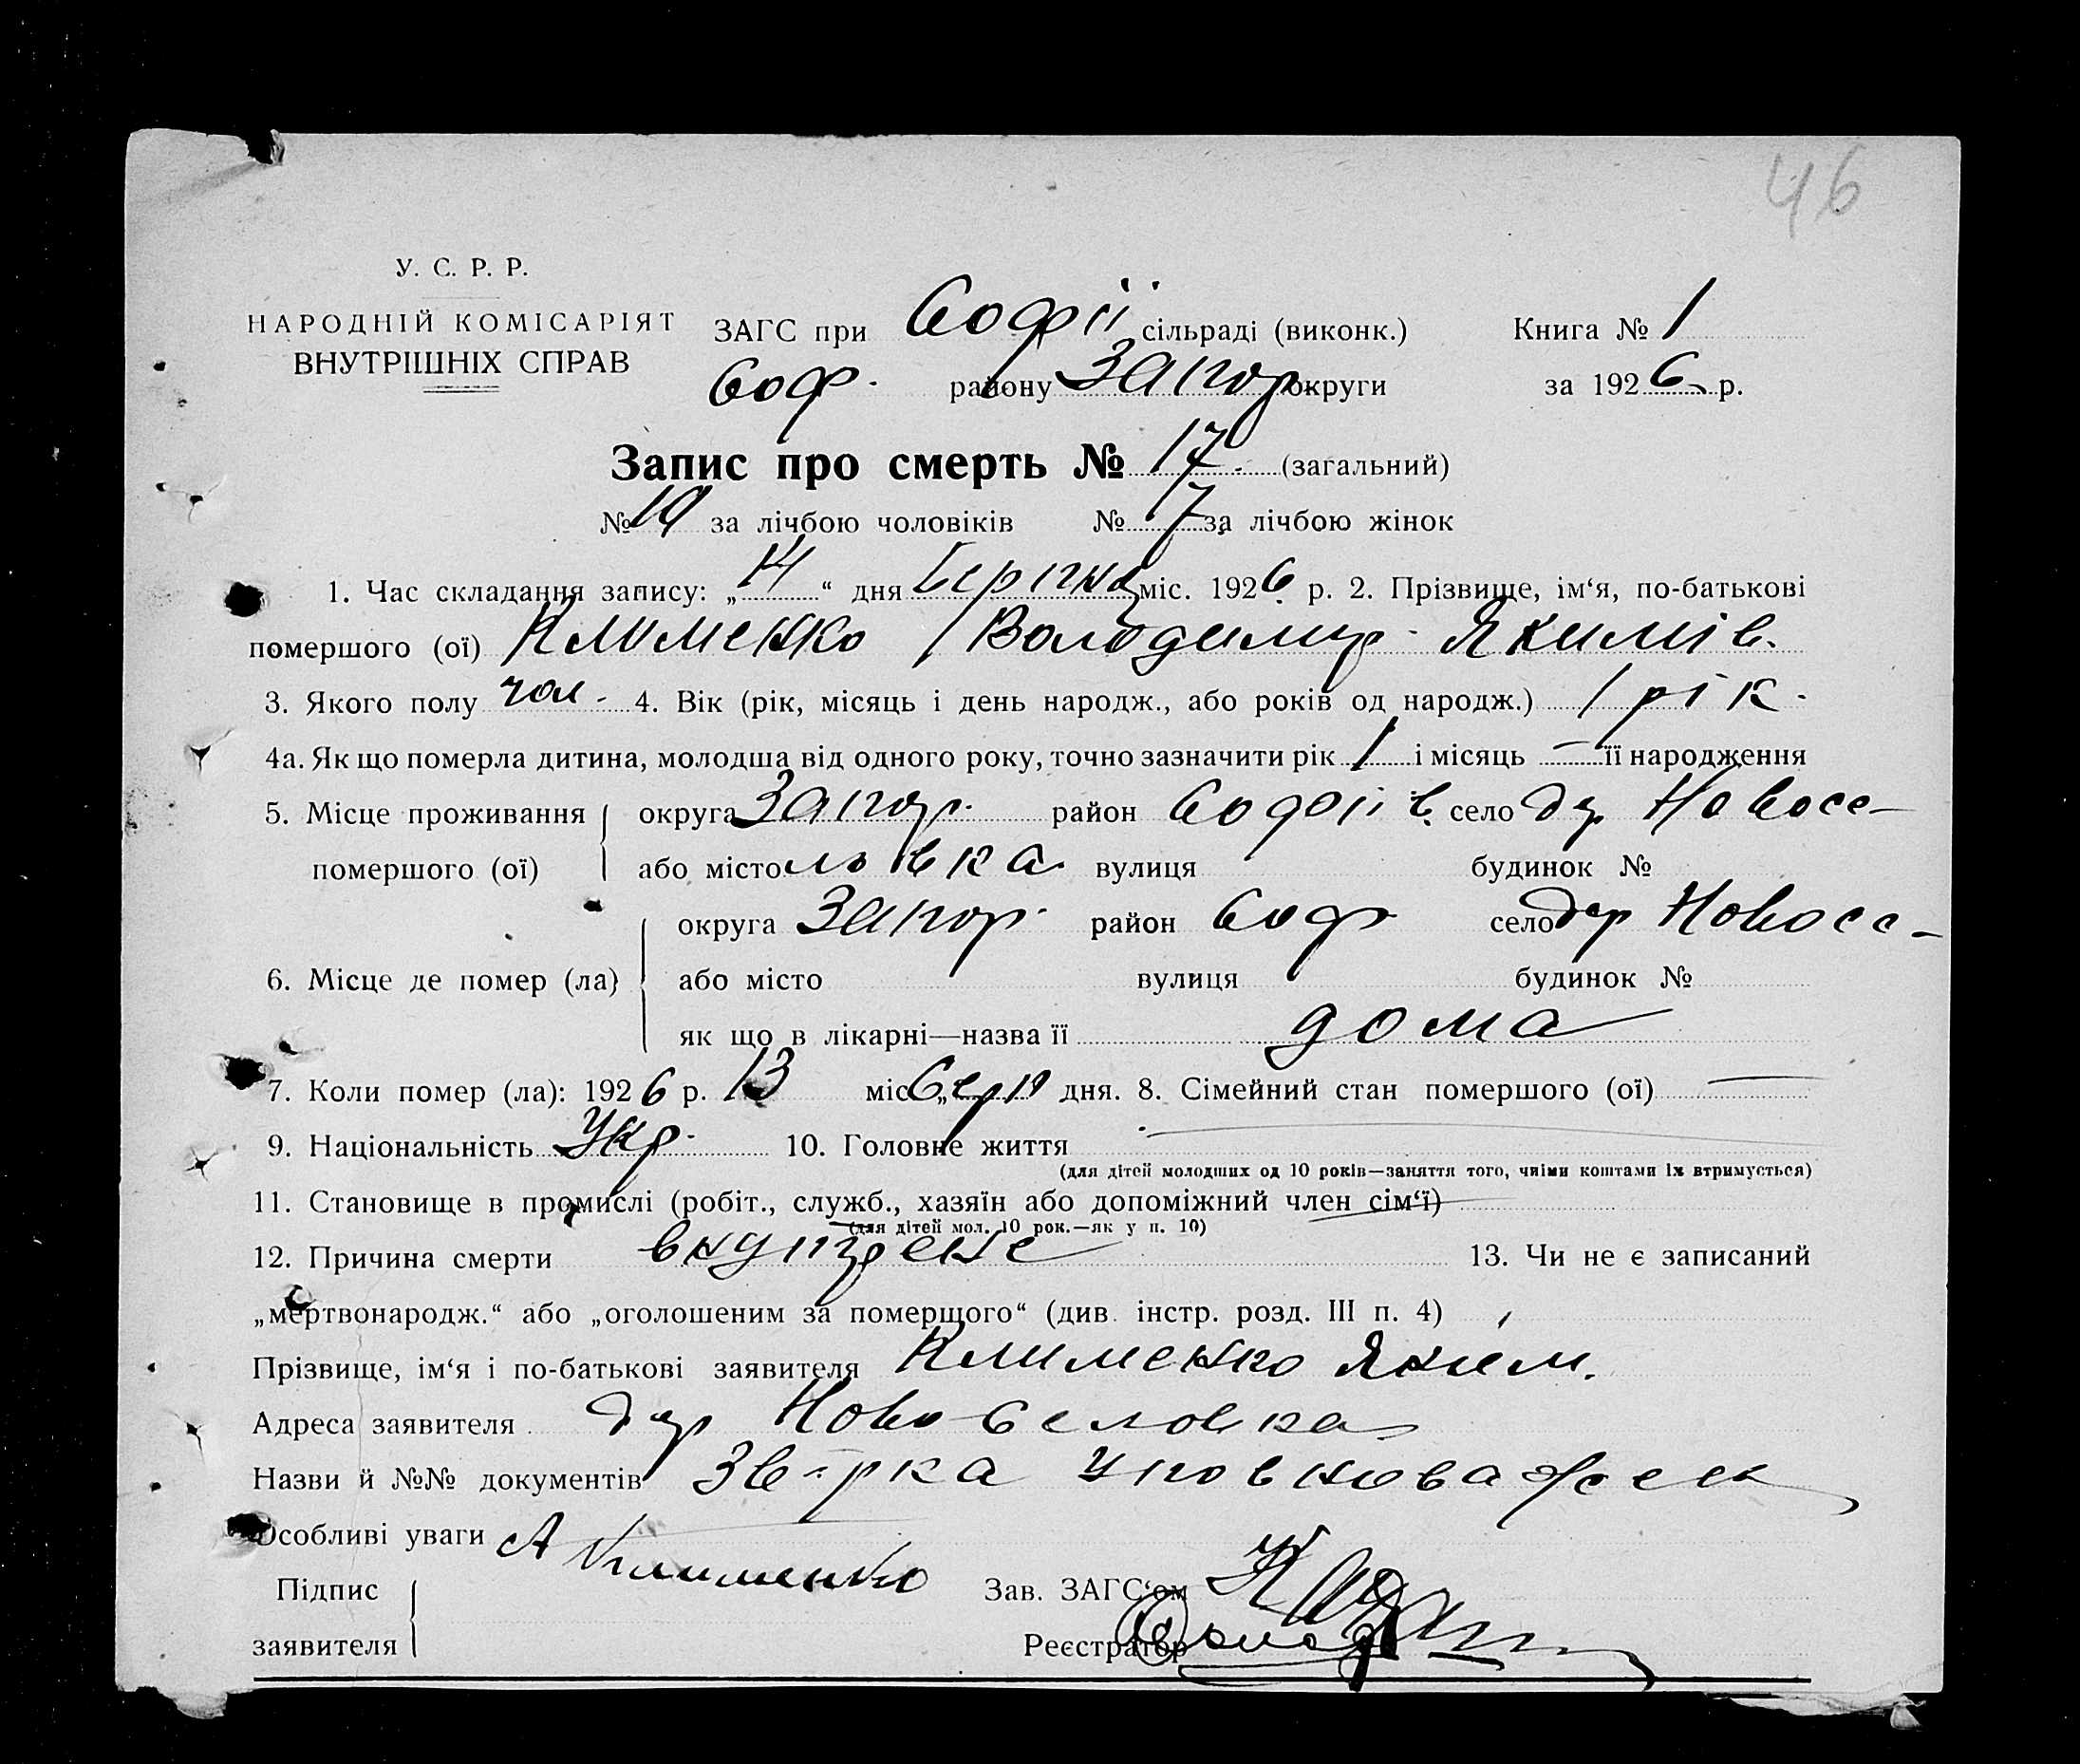 46
У. С. Р. Р.
НАРОДНІЙ КОМІСАРІЯТ
ВНУТРІШНІХ СПРАВ
ЗАГС при Софії сільраді (виконк.) Книга № 1
Соф. району Запор. округи за 1926 р.
Запис про смерть № 17. (загальний)
№ 10 за лічбою чоловіків № 7 за лічбою жінок
1. Час складання запису: „14“ дня Серпня міс. 1926 р. 2. Прізвище, ім‘я, по-батькові
помершого (ої) Клименко Володимир Якимів.
3. Якого полу чол. 4. Вік (рік, місяць і день народж., або років од народж.) 1 рік.
4а. Як що померла дитина, молодша від одного року, точно зазначити рік 1 і місяць — її народження
5. Місце проживання округа Запор. район Софіїв. село дер Новосе-
помершого (ої) або місто льівка вулиця будинок №
округа Запор. район Соф село дер Новосе-
6. Місце де помер (ла) або місто вулиця будинок №
як що в лікарні—назва її дома
7. Коли помер (ла): 1926 р. 13 міс „Серп дня. 8. Сімейний стан помершого (ої) —
9. Національність Укр. 10. Головне життя —
(для дітей молодших од 10 років—заняття того, чиїми коштами їх втримується)
11. Становище в промислі (робіт., служб., хазяїн або допоміжний член сім‘ї) —
(для дітей мол. 10 рок.—як у п. 10)
12. Причина смерти внутрене 13. Чи не є записаний
„мертвонародж.“ або „оголошеним за померщого“ (див. інстр. розд. III п. 4)
Прізвище, ім‘я і по-батькові заявителя Клименко Яким.
Адреса заявителя дер Ново Селовка
Назви й №№ документів Звірка
Особливі уваги
Підпис А Клименко Зав. ЗАГС‘ом
заявителя Реєстратор